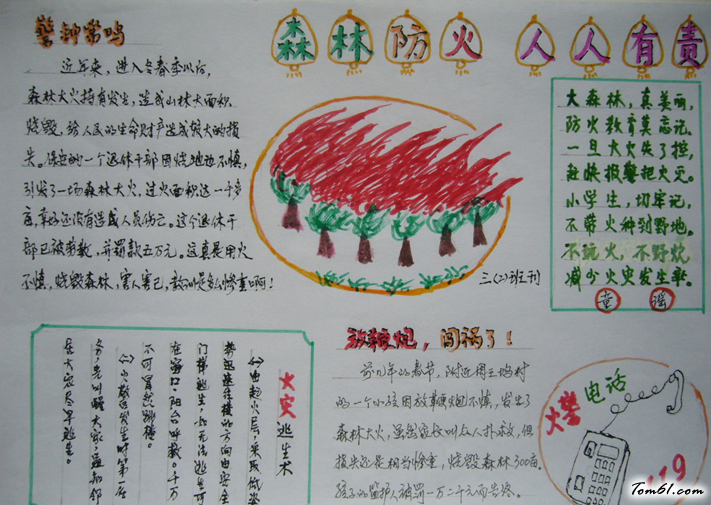 森林防火 人人有责
警钟常鸣
近年来，进入冬春季以后，
森林大火持有发生，造成山林大面积
烧毁，给人民的生命财产造成很大的损
失。保安的一个退休干部因烧地边不慎，
引发了一场森林大火，过火面积达一千多
亩，幸好还没有造成人员伤亡。这个退休干
部已被
并罚款五万元。这真是用火
不慎，烧毁森林，害人害己，教训是多么惨重啊！
三(2)班刊
大森林，真美丽，
防火教育莫忘记。
一旦大火失了控，
赶快报警把火灭。
小学生，切牢记，
不带火种到野地。
不玩火，不野炊，
减少火灾发生率。
童谣
火灾逃生术
(一)由起火层，采取低姿
势迅速往楼的方向由安全
门梯逃生，如无法逃生可
在窗口·阳台呼救。千万
不可冒然跳楼。
(二)火灾发生时第一任
务先叫醒大家，通知邻
居大家尽早逃生。
放鞭炮，闯祸了！
前几年的春节，附近周王坞村
的一个小孩因放鞭炮不慎，发生了
森林大火，虽然家长叫众人扑救，但
损失还是相当惨重，烧毁森林300亩，
孩子的监护人被罚一万二千元而告终。
火警电话
119
Tom61.com